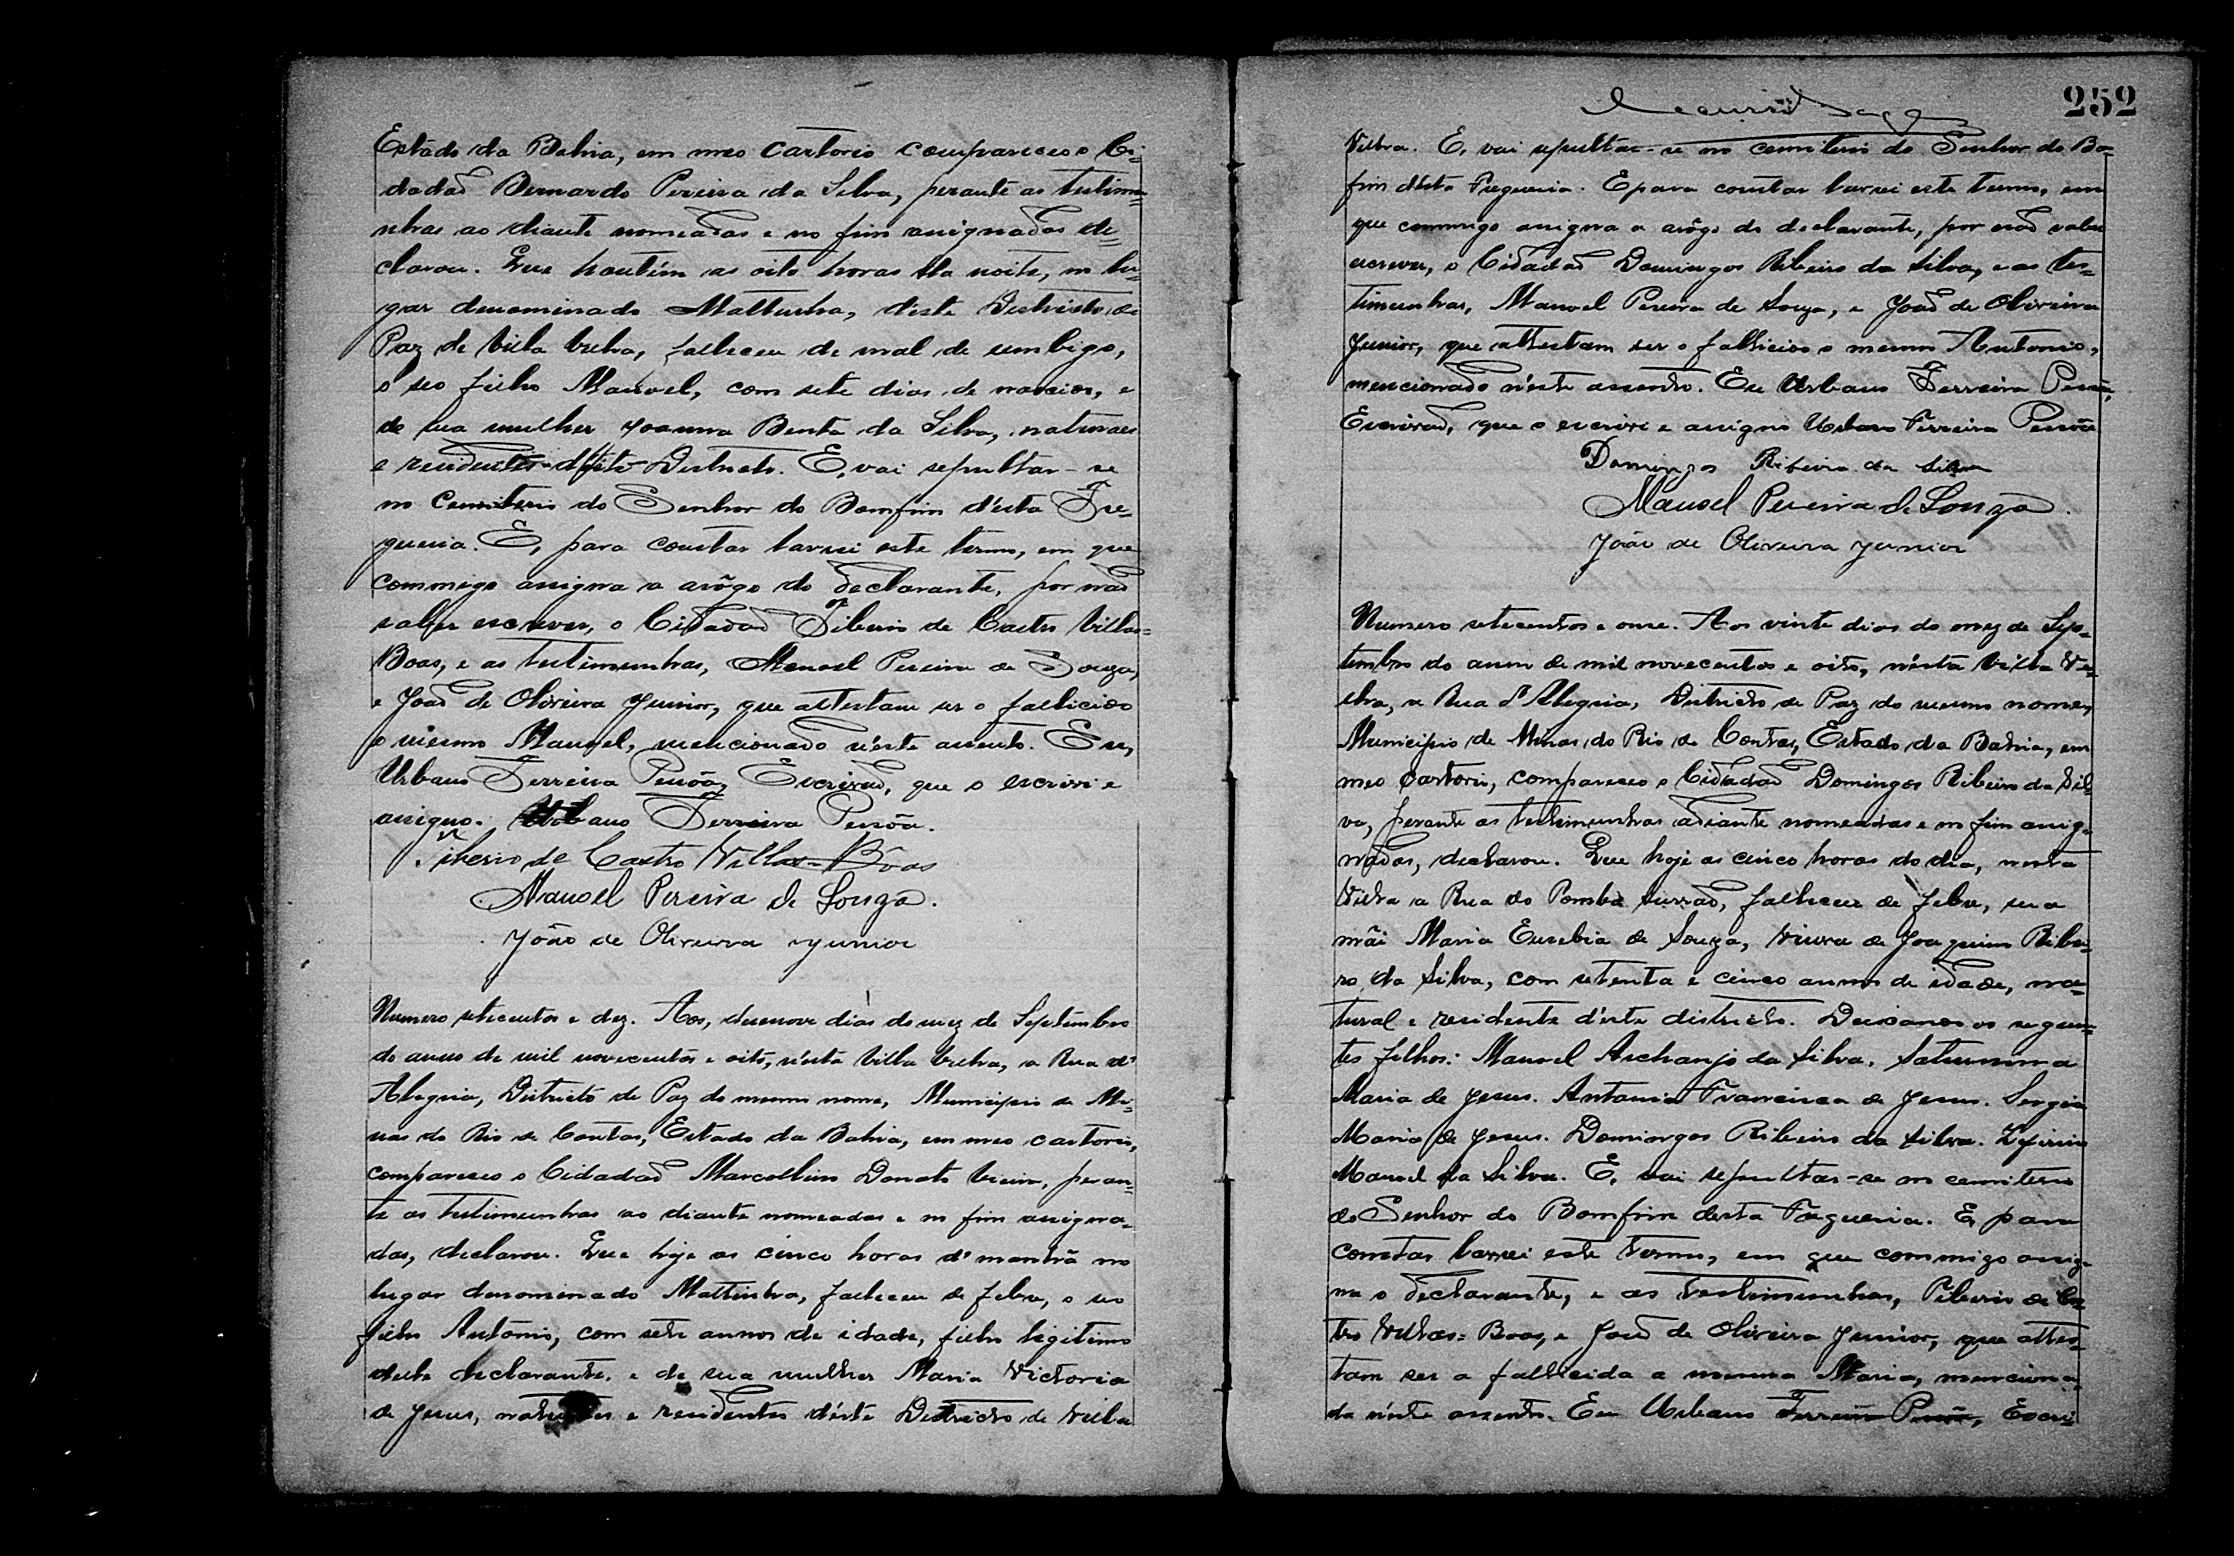 Estado da Bahia, em meo Cartorio compareceo o Ci-
dadaõ Bernardo Pereira da Silva, perante as testimu-
nhas ao diante nomeadas e no fim assignadas de-
clarou. Que hontêm as oito horas da noite, no lu-
gar denominado Mattinha, d'este Districto de
Paz de Villa Velha, falleceu de mal de umbigo,
o seo filho Manoel, com sete dias de nascido, e
de sua mulher Joanna Benta da Silva, naturaes
e residentes d'este Districto. E, vai sepultar-se
no Cemiterio do Senhor do Bomfim d'esta Fre-
guesia. E, para constar lavrei este termo, em que
commigo assigna a arôgo do declarante, por naõ
saber escrever, o Cidadaõ Tiberio de Castro Villas=
Boas, e as testimunhas, Manoel Pereira de Souza,
e Joaõ de Oliveira Junior, que attestam ser o fallicido
o mesmo Manoel, mencionado n'este assento. Eu,
Urbano Ferreira Pessôa, Escrivaõ, que o escrivi e
assigno. Urbano Ferreira Pessôa.
Tiberio de Castro Villas-Bôas
Manoel Pereira de Souza.
João de Oliveira Junior
Numero setecentos e dez. Aos, desenove dias do mez de Septembro
do anno de mil novecentos e oito, n'esta Villa Velha, a Rua d'
Alegria, Districto de Paz do mesmo nome, Municipio de Mi-
nas do Rio de Contas, Estado da Bahia, em meo cartorio,
compareceo o Cidadaõ Marcollino Donato Vieira, peran-
te as testimunhas ao diante nomeadas e no fim assigna-
das, declarou. Que hoje as cinco horas d'manhã no
lugar denominado Mattinha, falleceu de febre, o seo
filho Antonio, com sete annos de idade, filho legitimo
delle declarante, e de sua mulher Maria Victoria
de Jesus, naturaes e residentes d'este Districto de Villa
252
Velha. E, vai sepultar-se no cemiterio do Senhor do Bo-
fim d'esta Freguesia. E para constar lavrei este termo, em
que commigo assigna a arôgo do declarante, por naõ saber
escrever, o Cidadaõ Domingos Ribeiro da Silva, e as tes-
timunhas, Manoel Pereira de Souza, e Joaõ de Oliveira
Junior, que attestam ser o fallicido o mesmo Antonio,
mencionado n'este assento. Eu Urbano Ferreira Pessôa,
Escrivaõ, que o escrivi e assigno Urbano Ferreira Pessôa
Domingos Ribeiro da Silva
Manoel Pereira de Souza.
João de Oliveira Junior
Numero setecentos e onse. Aos vinte dias do mez de Sep-
tembro do anno de mil novecentos e oito, n'esta Villa Ve-
lha, a Rua d'Alegria, Districto de Paz do mesmo nome,
Municipio de Minas do Rio de Contas, Estado da Bahia, em
meo cartorio, compareceo o Cidadaõ Domingos Ribeiro da Sil-
va, perante as testimunhas adiante nomeadas e no fim assig-
nadas, declarou. Que hoje as cinco horas do dia, nesta
Villa a Rua do Pomba Surraõ, falleceu de febre, sua
mãi Maria Eusebia de Souza, viuva de Joaquim Ribei-
ro da Silva, com setenta e cinco annos de idade, na-
tural e residente d'este districto. Deixanos os seguin-
tes filhos: Manoel Archanjo da Silva. Saturnina
Maria de Jesus. Antonia Francisca de Jesus. Sergia
Maria de Jesus. Domingos Ribeiro da Silva. Zifirino
Manoel da Silva. E, vai sepultar-se no cemiterio
do Senhor do Bomfim desta Freguesia. E, para
constar lavrei este termo, em que commigo assig-
na o declarante, e as testimunhas, Tiberio de Cas-
tro Villas=Boas, e Joaõ de Oliveira Junior, que attes-
tam ser a fallecida a mesma Maria, menciona-
da n'este assento. Eu Urbano Ferreira Pessôa, Escri-